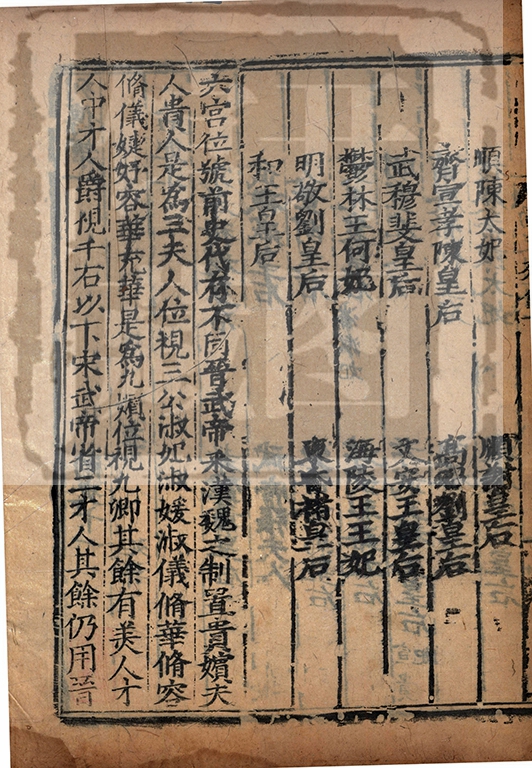 順陳太妃 順謝皇后
齊宣孝陳皇后 高昭劉皇后
武穆裴皇后 文安王皇后
鬱林王何妃 海陵王王妃
明敬劉皇后 東昏褚皇后
和王皇后
六宮位號前史代有不同晉武帝采漢魏之制置貴嬪夫
人貴人是為三夫人位視三公淑妃淑媛淑儀脩華脩容
脩儀婕妤容華充華是為九嬪位視九卿其餘有美人才
人中才人爵視千石以下宋武帝省二才人其餘仍用晉